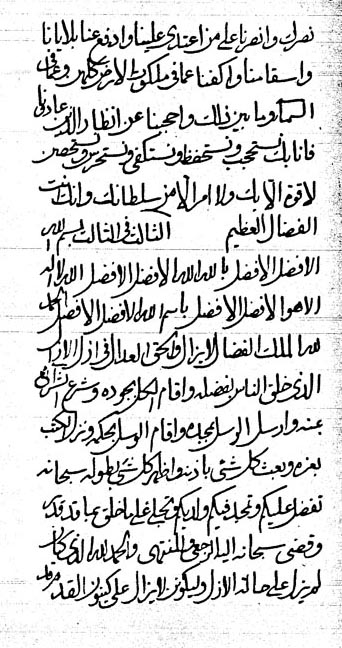 نصرك وانصرنا على من اعتدى علينا وادفع عنا بلايانا
واسقامنا واكفنا عما فى ملكوت الارض كلهن وعما فى
السماء وما بين ذلك واحجبنا عن انظار الذين عادونا
فانا بك نستحجب ونستحفظ ونستكفى ونستحرس ونستحصن
لا قوة الا بك ولا امر الا من سلطانك وانك انت
الفضال العظيم الثالث فى الثالث بسم الله
الافضل الافضل بالله الله الافضل الافضل الله لا اله
الا هو الافضل الافضل باسم الله الافضل الافضل الحمد
لله الملك الفضال لا يزال والحق العدال فى ازل الازال
الذى خلق الناس بفضله واقام الكل بجوده وشرع الشرايع
عنه وارسل الرسل بمجده واقام الوسل بحكمه ونزل الكتب
بعزه وبعث كل شئ باذنه واظهر كل شئ بطوله سبحانه
تفضل عليكم وتجلى فيكم ولا يكو تجلى على ما خلق بما قد قدر
وقضى سبحانه اليه الرجعى والمنتهى والحمد لله الذى كان
لم يزل على حالة الازل وليكونن لا يزال على كينونة القدم قد